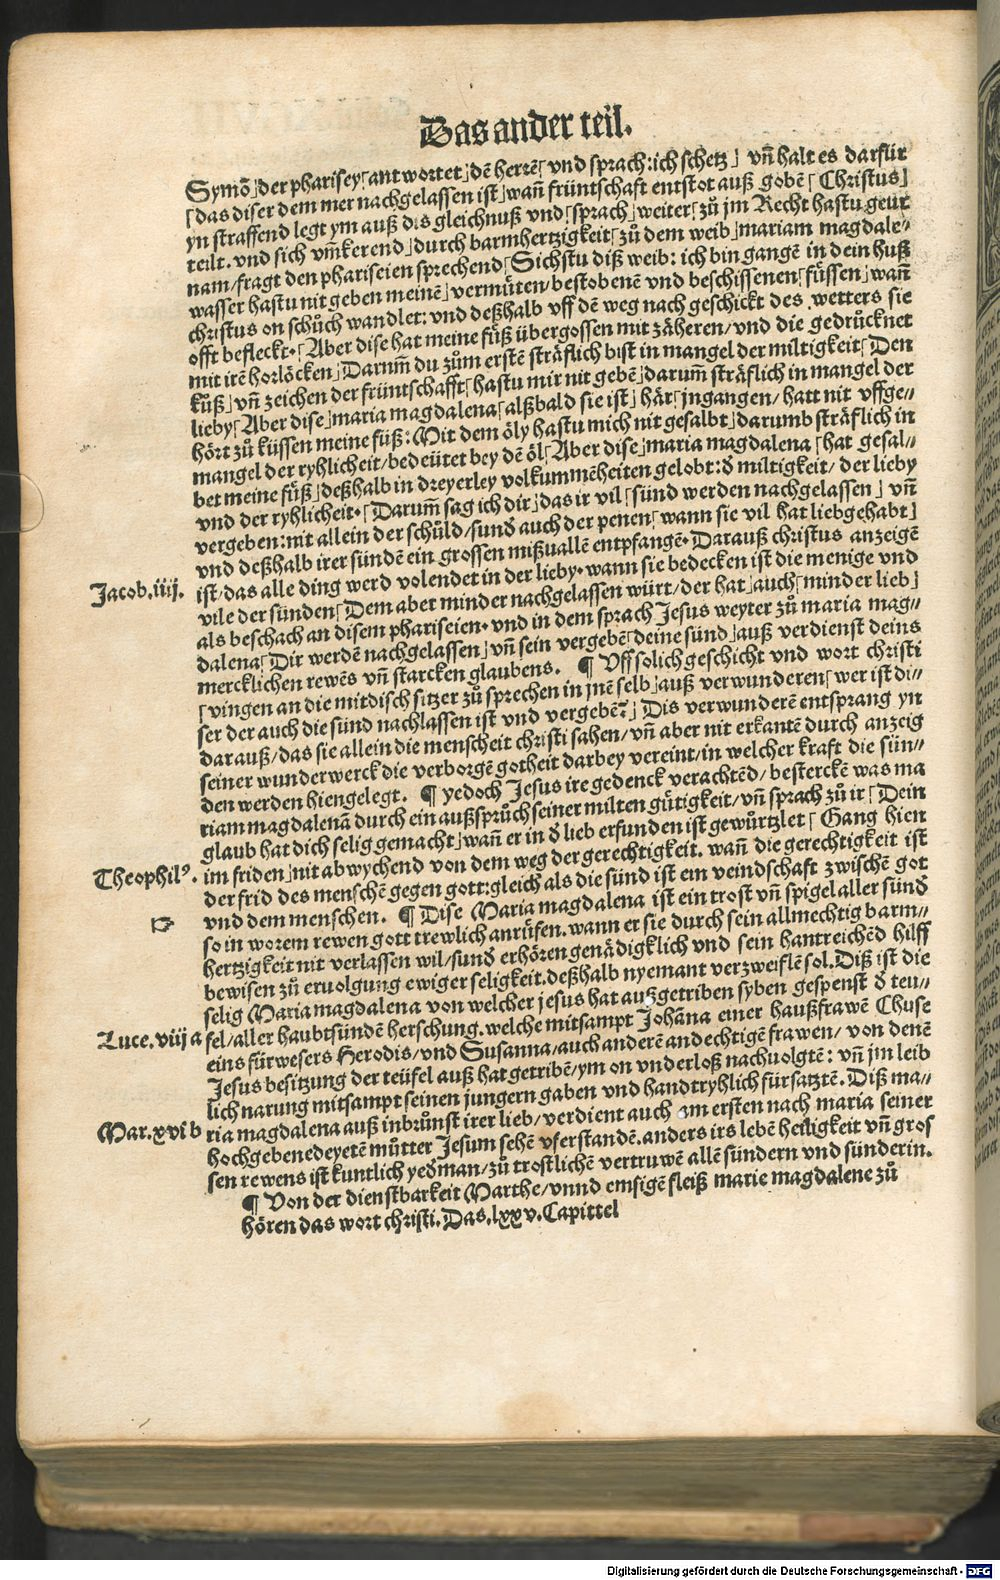 Das ander teil.
Symō⌋der pharisey⌈antwortet⌋dē herrē⌈vnd sprach:ich schetz⌋ vñ halt es darfür
⌈das diser dem mer nachgelassen ist⌋wañ früntschaft entstot auß gobē⌈Christus⌋
yn straffend legt ym auß dis gleichnuß vnd⌈sprach⌋weiter⌈zů jm Recht hastu geur
teilt. vnd sich vm̄kerend⌋durch barmhertzigkeit⌈zů dem weib⌋mariam magdale⸗
nam/fragt den phariseien sprechend⌈Sichstu diß weib: ich bin gangē in dein huß
wasser hastu nit geben meinē⌋vermüten/bestobenē vnd beschissenen⌈füssen⌋wañ
christus on schůch wandlet: vnd deßhalb vff dē weg nach geschickt des wetters sie
offt befleckt.⌈Aber dise hat meine füß übergossen mit zäheren/vnd die gedrůcknet
mit irē horlöcken⌋Darum̄ du zům erstē sträflich bist in mangel der miltigkeit⌈Den
kuß⌋vñ zeichen der früntschafft⌈hastu mir nit gebē⌋darum̄ sträflich in mangel der
lieby⌈Aber dise⌋maria magdalena⌈alßbald sie ist⌋här⌈jngangen/hatt nit vffge⸗
hört zů küssen meine füß: Mit dem öly hastu mich nit gesalbt⌋darumb sträflich in
mangel der ryhlicheit/bedeütet bey dē öl⌈Aber dise⌋maria magdalena⌈hat gesal⸗
bet meine füß⌋deßhalb in dreyerley volkummēheiten gelobt: d̄ miltigkeit/der lieby
vnd der ryhlicheit.⌈Darum̄ sag ich dir⌋das ir vil⌈sünd werden nachgelassen⌋ vñ
vergeben:nit allein der schüld/sund̄ auch der penen⌈wann sie vil hat liebgehabt⌋
vnd deßhalb irer sünden ein grossen mißuallē entpfangē. Darauß christus anzeigē
ist/das alle ding werd volendet in der lieby. wann sie bedecken ist die menige vnd
Jacob.iiij.
vile der sünden⌈Dem aber minder nachgelassen würt/der hat⌋auch⌈minder lieb⌋
als beschach an disem phariseien. vnd in dem sprach Jesus weyter zů maria mag⸗
dalena⌈Dir werdē nachgelassen⌋vñ sein vergebē⌈deine sünd⌋auß verdienst deins
mercklichen rewēs vñ starcken glaubens. ¶ Vff solich geschicht vnd wort christi
⌈vingen an die mitdisch sitzer zů sprechen in jnē selb⌋auß verwunderen⌈wer ist di⸗
ser der auch die sünd nachlassen ist vnd vergebē?⌋Dis verwunderē entsprang yn
darauß/das sie allein die menscheit christi sahen/vñ aber nit erkantē durch anzeig
seiner wunderwerck die verborgē gotheit darbey vereint/in welcher kraft die sün⸗
den werden hiengelegt. ¶ yedoch Jesus ire gedenck verachtēd/bestercken was ma
riam magdalenā durch ein außsprůch seiner milten gütigkeit/vñ sprach zů ir⌈Dein
glaub hat dich selig gemacht⌋wañ er in d̄ lieb erfunden ist gewürtzlet⌈Gang hien
Theophil⁹.
im friden⌋nit abwychend von dem weg der gerechtigkeit. wañ die gerechtigkeit ist
der frid des menschē gegen gott:gleich als die sünd ist ein veindschaft zwischē got
vnd dem menschen. ¶ Dise Maria magdalena ist ein trost vñ spigel aller sünd̄
so in worem rewen gott trewlich anrüfen. wann er sie durch sein allmechtig barm⸗
hertzigkeit nit verlassen wil/sund̄ erhören genädigklich vnd sein hantreichēd hilff
bewisen zů eruolgung ewiger seligkeit. deßhalb nyemant verzweiflē sol. Diß ist die
selig Maria magdalena von welcher jesus hat außgetriben syben gespenst d̄ teu⸗
Luce.viij a
fel/aller haubtsündē herschung. welche mitsampt Johāna einer haußfrawē Chuse
eins fürwesers Herodis/vnd Susanna/auch anderē andechtigē frawen/ von denē
Jesus besitzung der teüfel auß hat getribē/ym on vnderloß nachuolgtē: vñ jm leib
lich narung mitsampt seinen jungern gaben vnd handtryhlich fürsatztē. Diß ma⸗
Mar.xvi b
ria magdalena auß inbrünst irer lieb/verdient auch am ersten nach maria seiner
hochgebenedeyetē můtter Jesum sehē vferstandē. anders irs lebē heiligkeit vñ gros
sen rewens ist kuntlich yed̄man/zů trostlichē vertruwē allē sündern vnd sünderin.
¶ Von der dienstbarkeit Marthe/vnnd emsigē fleiß marie magdalene zů
hören das wort christi. Das.lxxv.Capittel
Digitalisierung gefördert durch die Deutsche Forschungsgemeinschaft - DFG